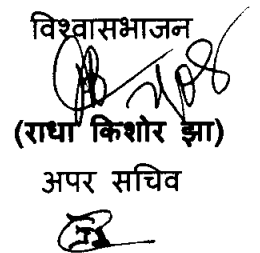 विश्वासभाजन
(राधा किशोर झा)
अपर सचिव